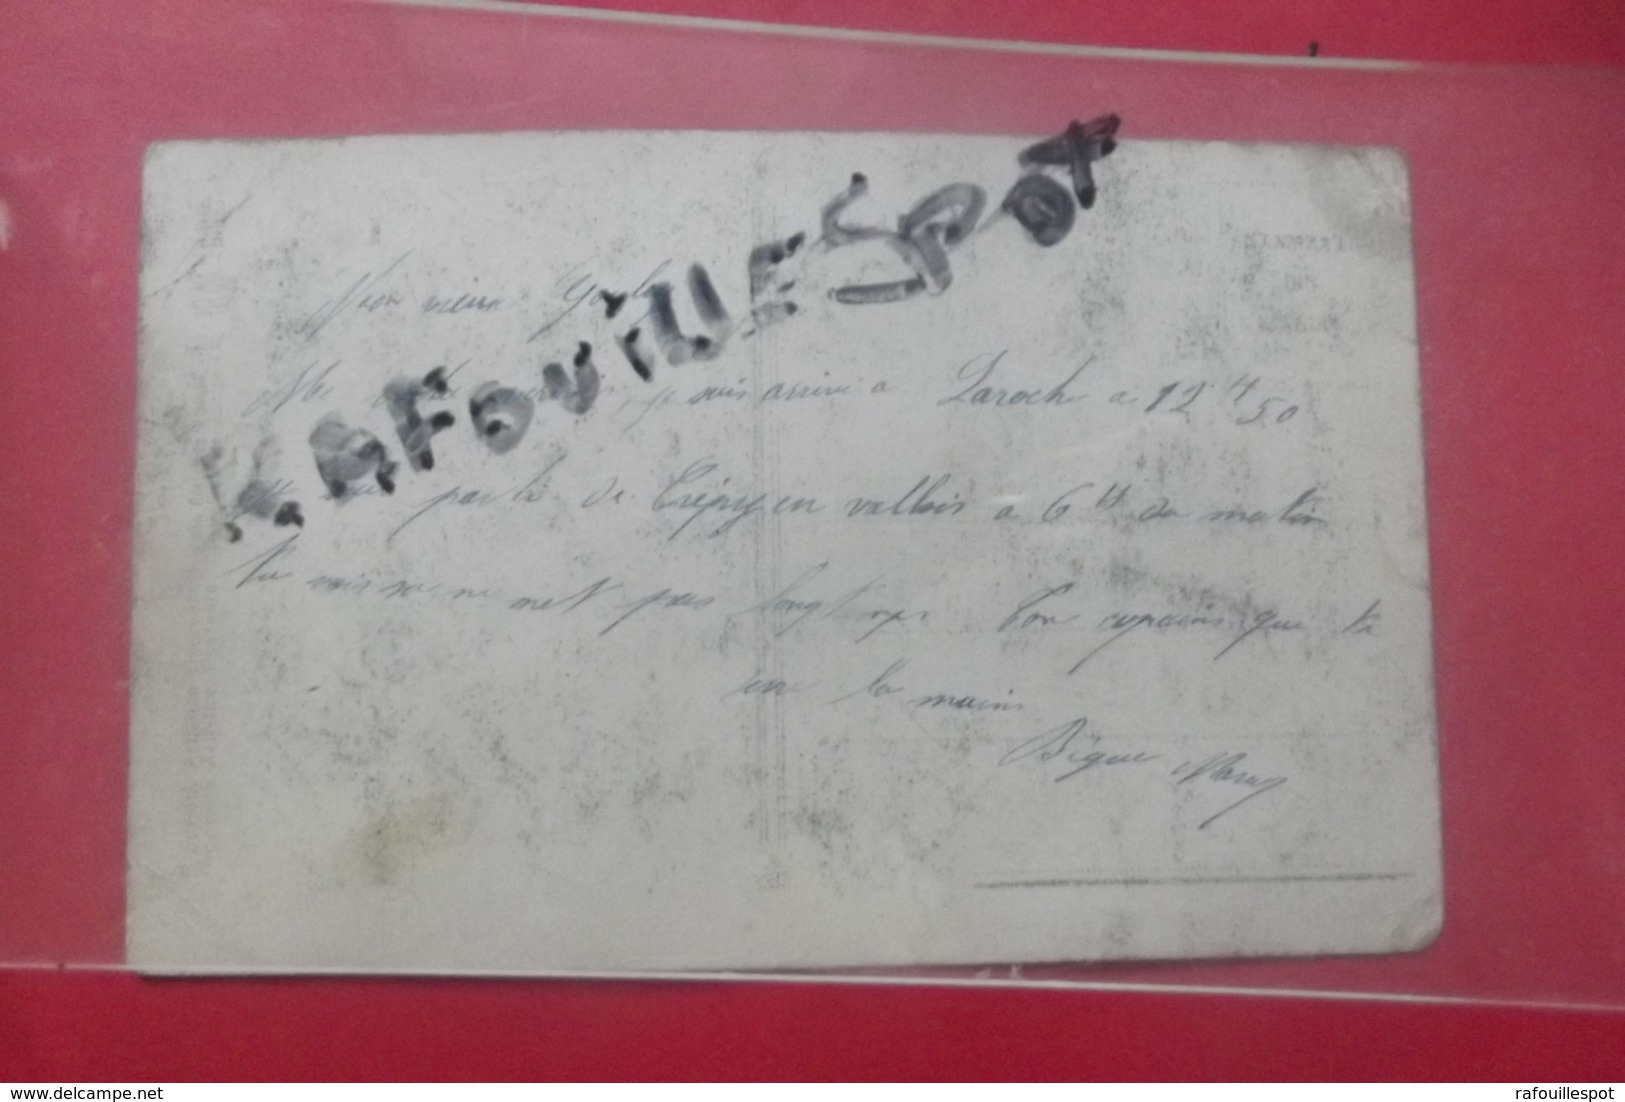 LAFOUILLESPOT
Mon vieux
je suis arrivé a Laroch a 12 H 50
parti de Crépy en vallois a 6 H du matin
tu vois sa ne met pas longtemps Ton copains que ta
serre la mains
Bique
delcampe.net
rafouillespot